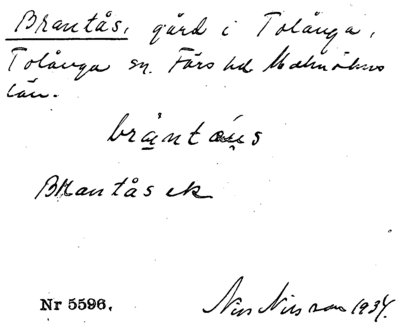 Brantås, gård i Tolånga,
Tolånga sn. Färs hd Malmöhus
län.
bräntås
Brantås ek
Nr 5596.
Nils Nilsson 1934.